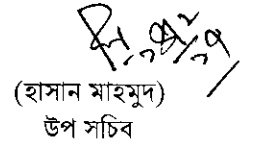 (হাসান মাহমুদ)
উপ সচিব